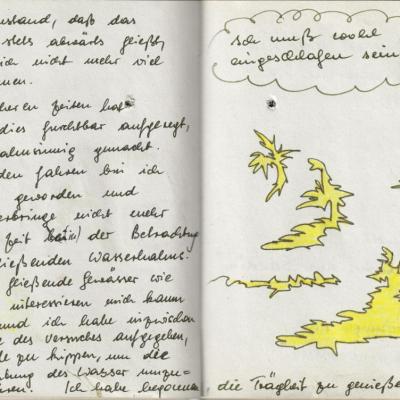 ustand, daß das
stets abwärts fließt,
ich nicht mehr viel
nen.
heren Zeiten hat
dies furchtbar aufgeregt,
ahnsinnig gemacht.
den Jahren bin ich
geworden und
erbringe nicht mehr
Zeit der Betrachtung
ließenden Wasserhahns.
fließende Gewässer wie
interessieren mich kaum
und ich habe inzwischen
e des Versuches aufgegeben,
de zu kippen, um die
bung des Wasser umzu-
ren. Ich habe begonnen, die Trägheit zu genieße
Ich muß wohl
eingeschlafen sein